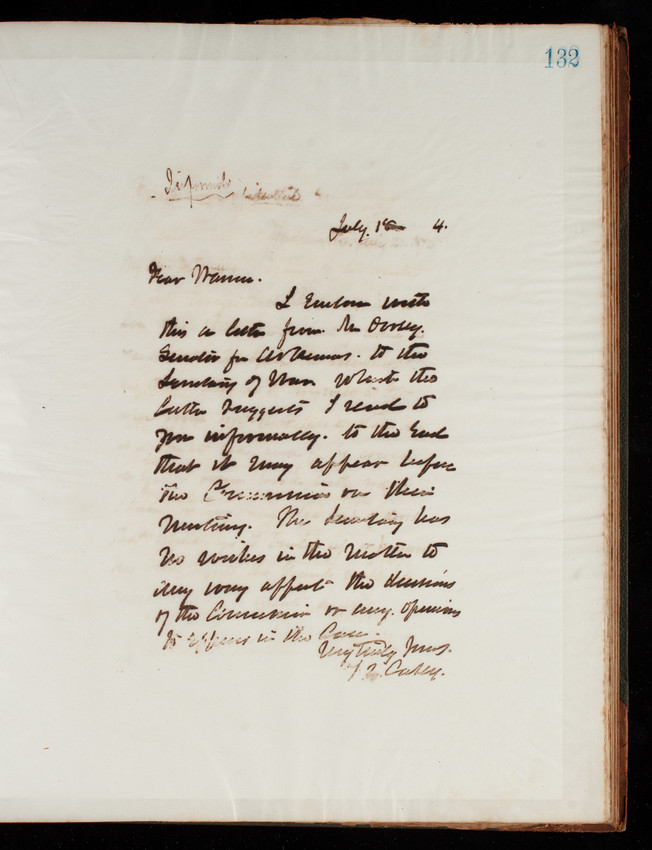 132
July. 18 4.
Dear Warren.
I Enclose with
this a letter from Mr Dorsey.
Senator for Arkansas. to the
Secretary of War which the
letter suggests I send to
you informally. to the End
that it may appear before
the Commission on their
meeting. The Secretary has
no wishes in the matter to
any way affect the decisions
of the Commission or any. opinions
to appear in the Case.
Very truly yours.
T L Casey.